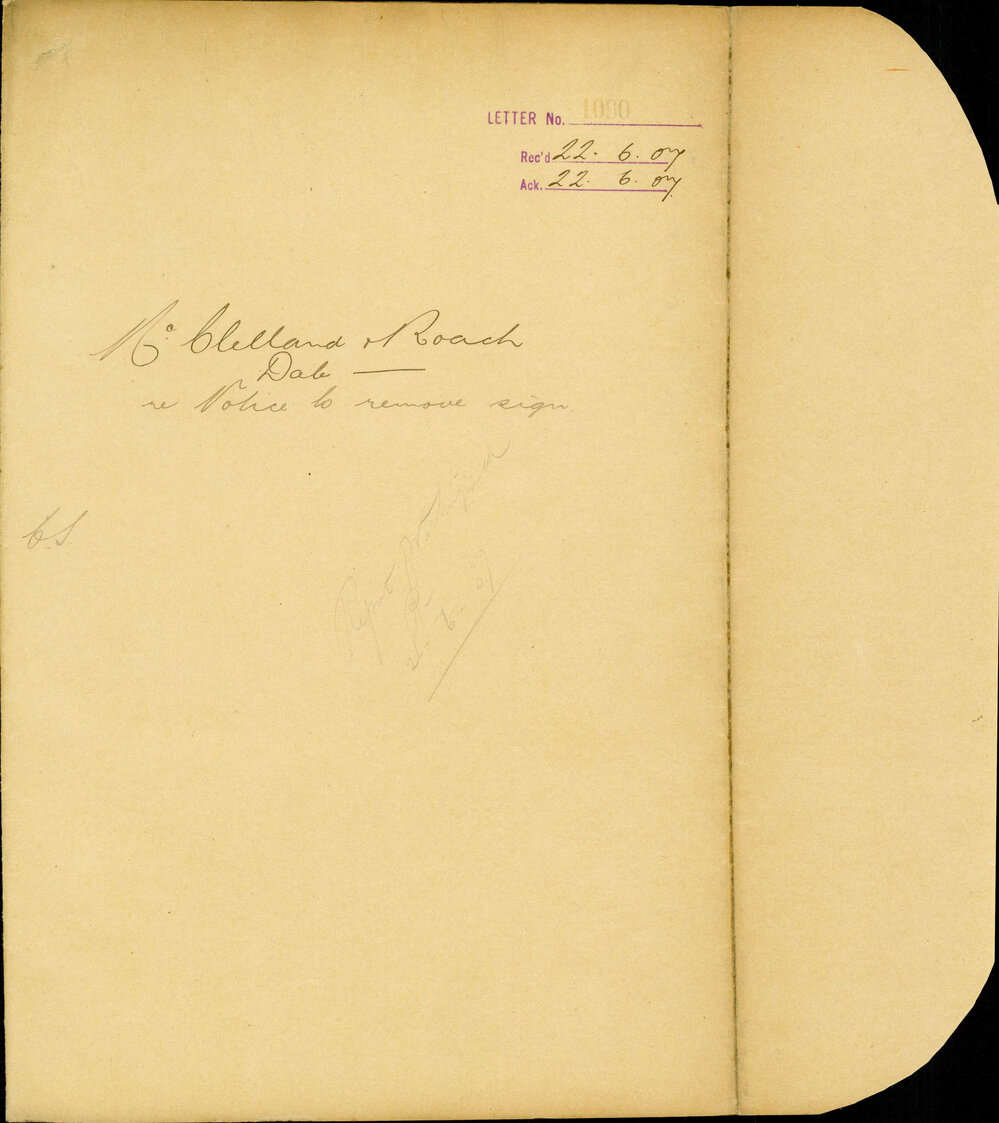 LETTER No. 1090
Rec'd 22. 6. 07
Ack. 22. 6. 07
Mc Clelland & Roach
Date —
re Notice to remove sign.
C.S.
6. 07